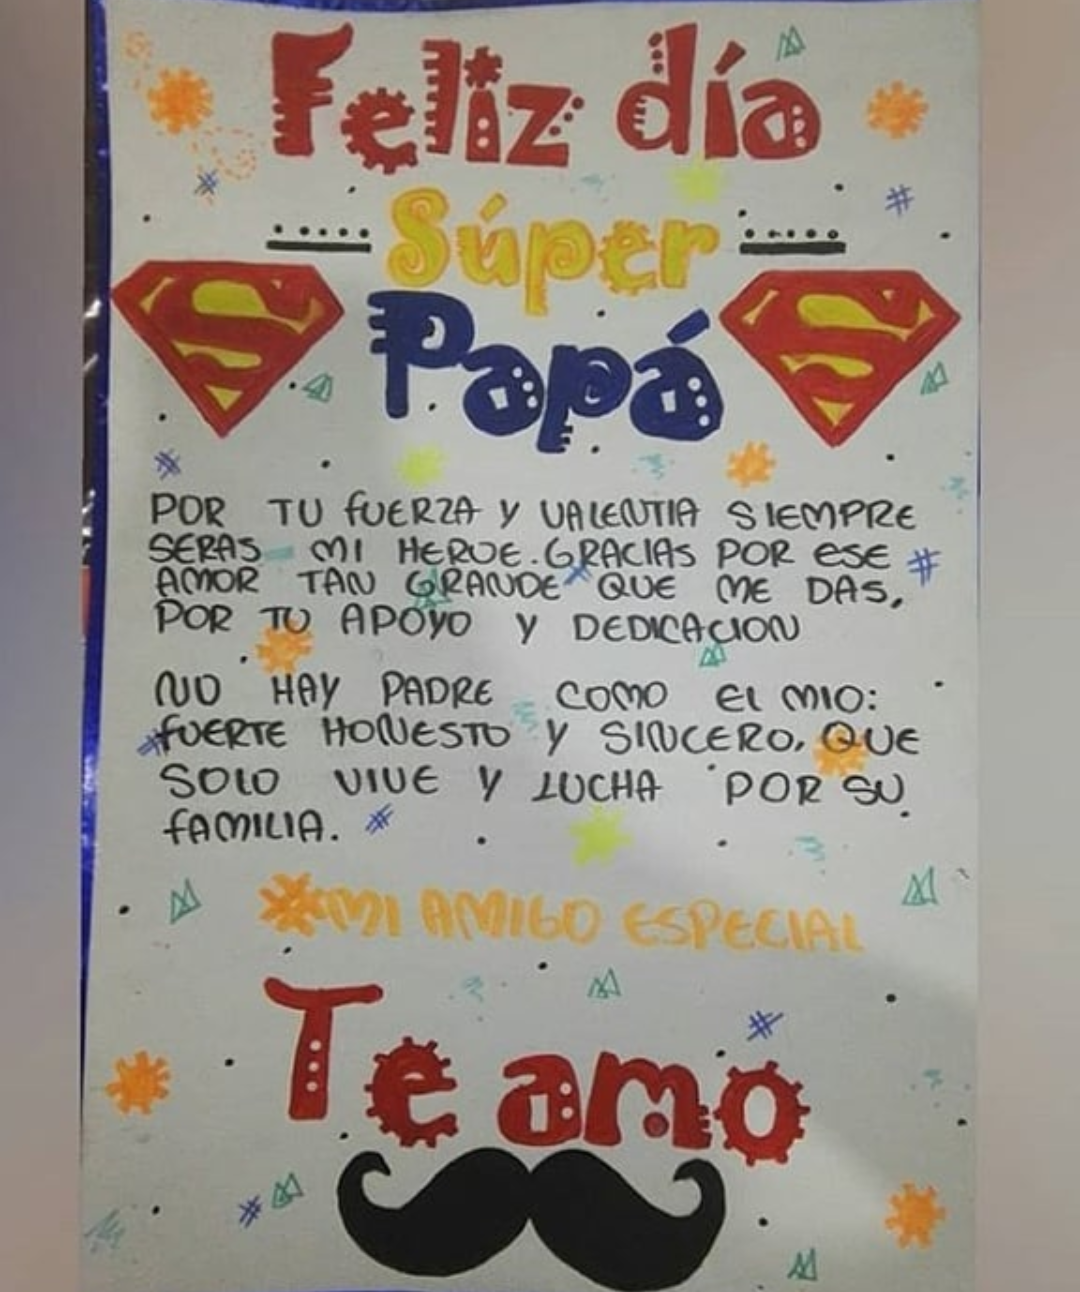 Feliz día
Súper
Papá
POR TU fUERZA Y VALENTIA SIEMPRE
SERAS MI HEROE. GRACIAS POR ESE
AMOR TAN GRANDE QUE ME DAS,
POR TU APOYO Y DEDICACION
NO HAY PADRE COMO El MIO:
fUERTE HONESTO Y SINCERO, QUE
SOLO VIVE Y LUCHA POR SU
fAMILIA.
MI AMIGO ESPECIAL
Te amo